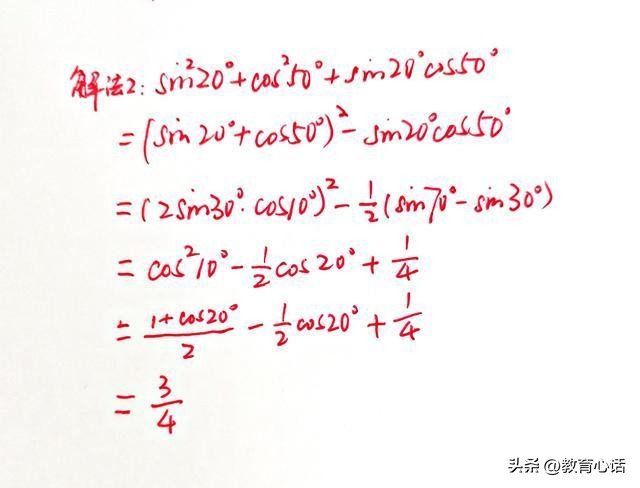 解法2: sin²20°+cos²50°+sin20°cos50°
=(sin20°+cos50°)²-sin20°cos50°
=(2sin30°·cos10°)²-½(sin70°-sin30°)
=cos²10°-½cos20°+¼
=(1+cos20°)/2-½cos20°+¼
=¾
头条 @教育心话